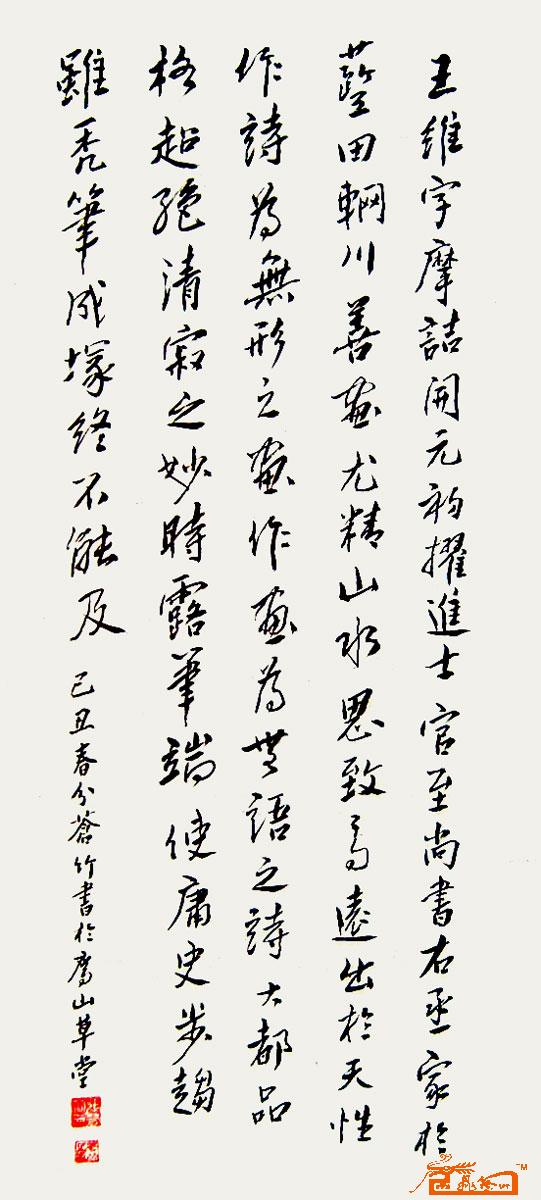 王維字摩詰開元初擢進士官至尚書右丞家於
藍田輞川善畫尤精山水思致高遠出於天性
作詩為無形之畫作畫為無語之詩大都品
格超絕清寂之妙時露筆端使庸史步趨
雖禿筆成塚終不能及
己丑春分蒼竹書於鷹山草堂